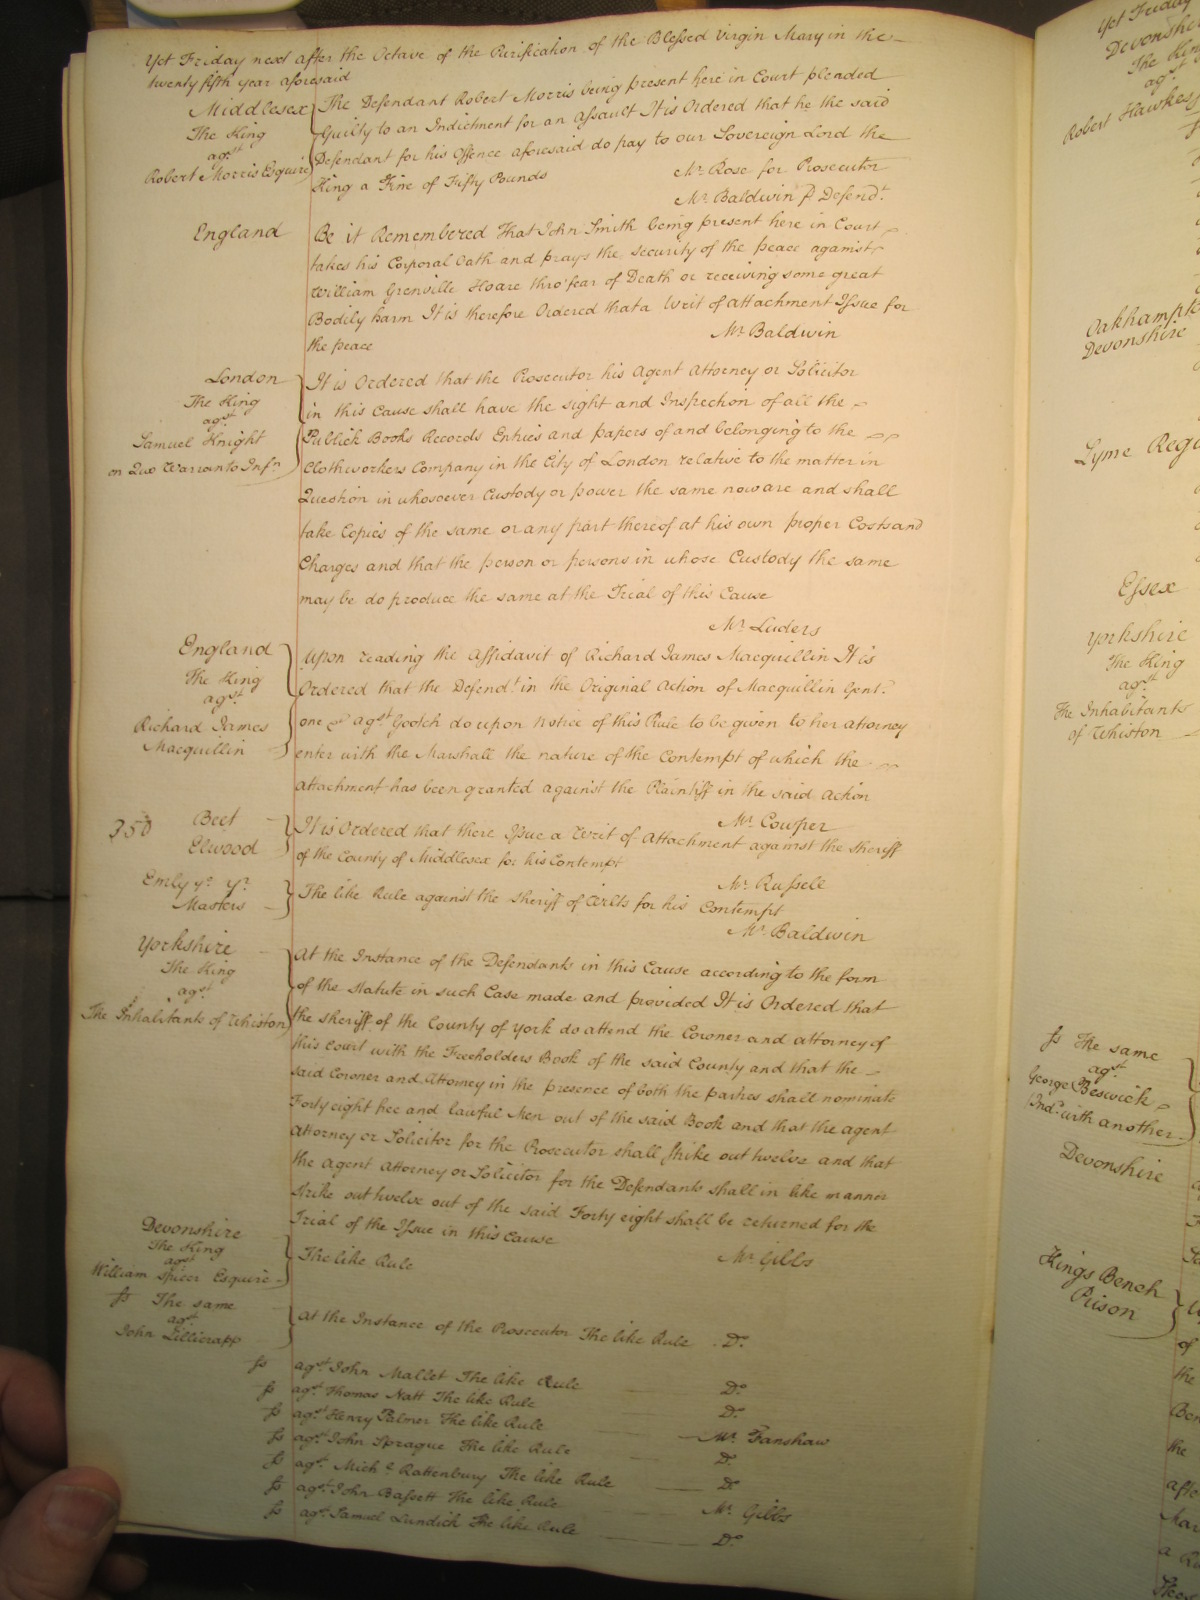 Yet Friday next after the Octave of the Purification of the Blessed Virgin Mary in the
twenty fifth year aforesaid
Middlesex
The King
agst
Robert Morris Esquire
The Defendant Robert Morris being present here in Court pleaded
Guilty to an Indictment for an Assault It is Ordered that he the said
Defendant for his Offence aforesaid do pay to our Sovereign Lord the
King a Fine of Fifty Pounds
Mr Rose for Prosecutor
Mr Baldwin p Defendt
England
Be it Remembered That John Smith being present here in Court
takes his Corporal Oath and prays the security of the peace against
William Grenville Hoare thro' fear of Death or receiving some great
Bodily harm It is therefore Ordered that a Writ of Attachment Issue for
the peace
Mr Baldwin
London
The King
agst
Samuel Knight
on Quo Warranto Infn
It is Ordered that the Prosecutor his Agent Attorney or Solicitor
in this Cause shall have the sight and Inspection of all the
Publick Books Records Entries and papers of and belonging to the
Clothworkers Company in the City of London relative to the matter in
Question in whosoever Custody or power the same now are and shall
take Copies of the same or any part thereof at his own proper Costs and
Charges and that the person or persons in whose Custody the same
may be do produce the same at the Trial of this Cause
Mr Luders
England
The King
agst
Richard James
Macquillin
Upon reading the Affidavit of Richard James Macquillin It is
Ordered that the Defendt in the Original Action of Macquillin Gent
one &c agst Gooch do upon Notice of this Rule to be given to her attorney
enter with the Marshall the nature of the Contempt of which the
Attachment has been granted against the Plaintiff in the said Action
Mr Cowper
350
Beet
Elwood
It is Ordered that there Issue a Writ of Attachment against the Sheriff
of the County of Middlesex for his Contempt
Mr Russell
Emly yr yr
Masters
The like Rule against the Sheriff of Wilts for his Contempt
Mr Baldwin
Yorkshire
The King
agst
The Inhabitants of Whiston
At the Instance of the Defendants in this Cause according to the form
of the Statute in such Case made and provided It is Ordered that
the Sheriff of the County of York do attend the Coroner and Attorney of
this Court with the Freeholders Book of the said County and that the
said Coroner and Attorney in the presence of both the parties shall nominate
Forty eight free and lawful Men out of the said Book and that the agent
Attorney or Solicitor for the Prosecutor shall strike out twelve and that
the agent Attorney or Solicitor for the Defendants shall in like manner
strike out twelve out of the said Forty eight shall be returned for the
Trial of the Issue in this Cause
Mr Gibbs
Devonshire
The King
agst
William Spicer Esquire
The like Rule
ss The same
agst
John Lillicrapp
At the Instance of the Prosecutor The like Rule Do
ss agst John Mallet The like Rule Do
ss agst Thomas Natt The like Rule Do
ss agst Henry Palmer The like Rule Mr Fanshaw
ss agst John Sprague The like Rule Do
ss agst Michl Rattenbury The like Rule Do
ss agst John Bassett The like Rule Mr Gibbs
ss agst Samuel Lundick The like Rule Do
Yet Friday
Devonshire
The King
agst
Robert Hawkes
Oakhampton
Devonshire
Lyme Regis
Essex
Yorkshire
The King
agst
The Inhabitants
of Whiston
ss The same
agst
George Beswick
Indd with another
Devonshire
Kings Bench
Prison
of
the
the
a